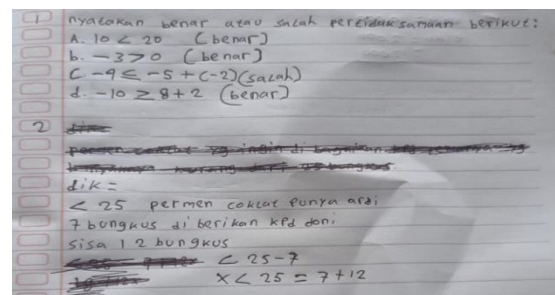 1 nyatakan benar atau salah pertidaksamaan berikut:
A. 10 < 20 (benar)
b. -3 > 0 (benar)
C. -9 ≤ -5 + (-2) (salah)
d. -10 ≥ 8 + 2 (benar)
2
dik =
< 25 permen coklat punya ardi
7 bungkus di berikan kpd doni
sisa 12 bungkus
< 25 - 7
x < 25 = 7 + 12